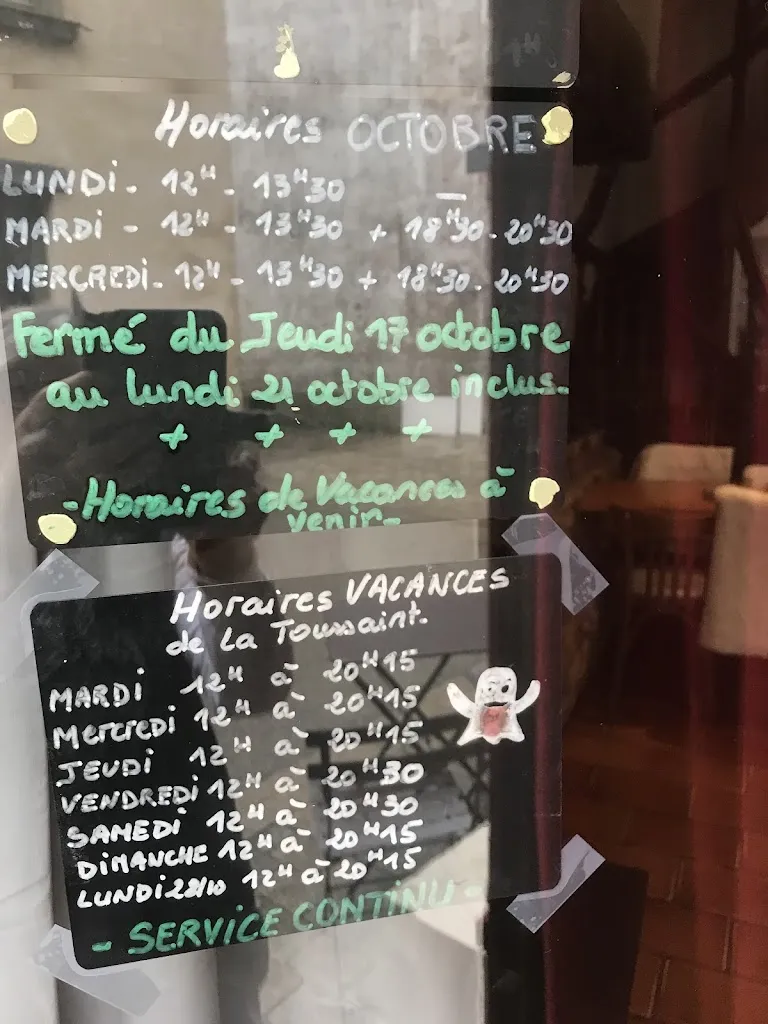 Horaires OCTOBRE
LUNDI - 12H - 13H30 —
MARDI - 12H - 13H30 + 18H30 - 20H30
MERCREDI - 12H - 13H30 + 18H30 - 20H30
Fermé du Jeudi 17 octobre
au lundi 21 octobre inclus.
+ + + +
- Horaires de Vacances à
venir -
Horaires VACANCES
de La Toussaint.
MARDI 12H à 20H15
Mercredi 12H à 20H15
JEUDI 12H à 20H15
VENDREDI 12H à 20H30
SAMEDI 12H à 20H30
DIMANCHE 12H à 20H15
LUNDI 28/10 12H à 20H15
- SERVICE CONTINU -